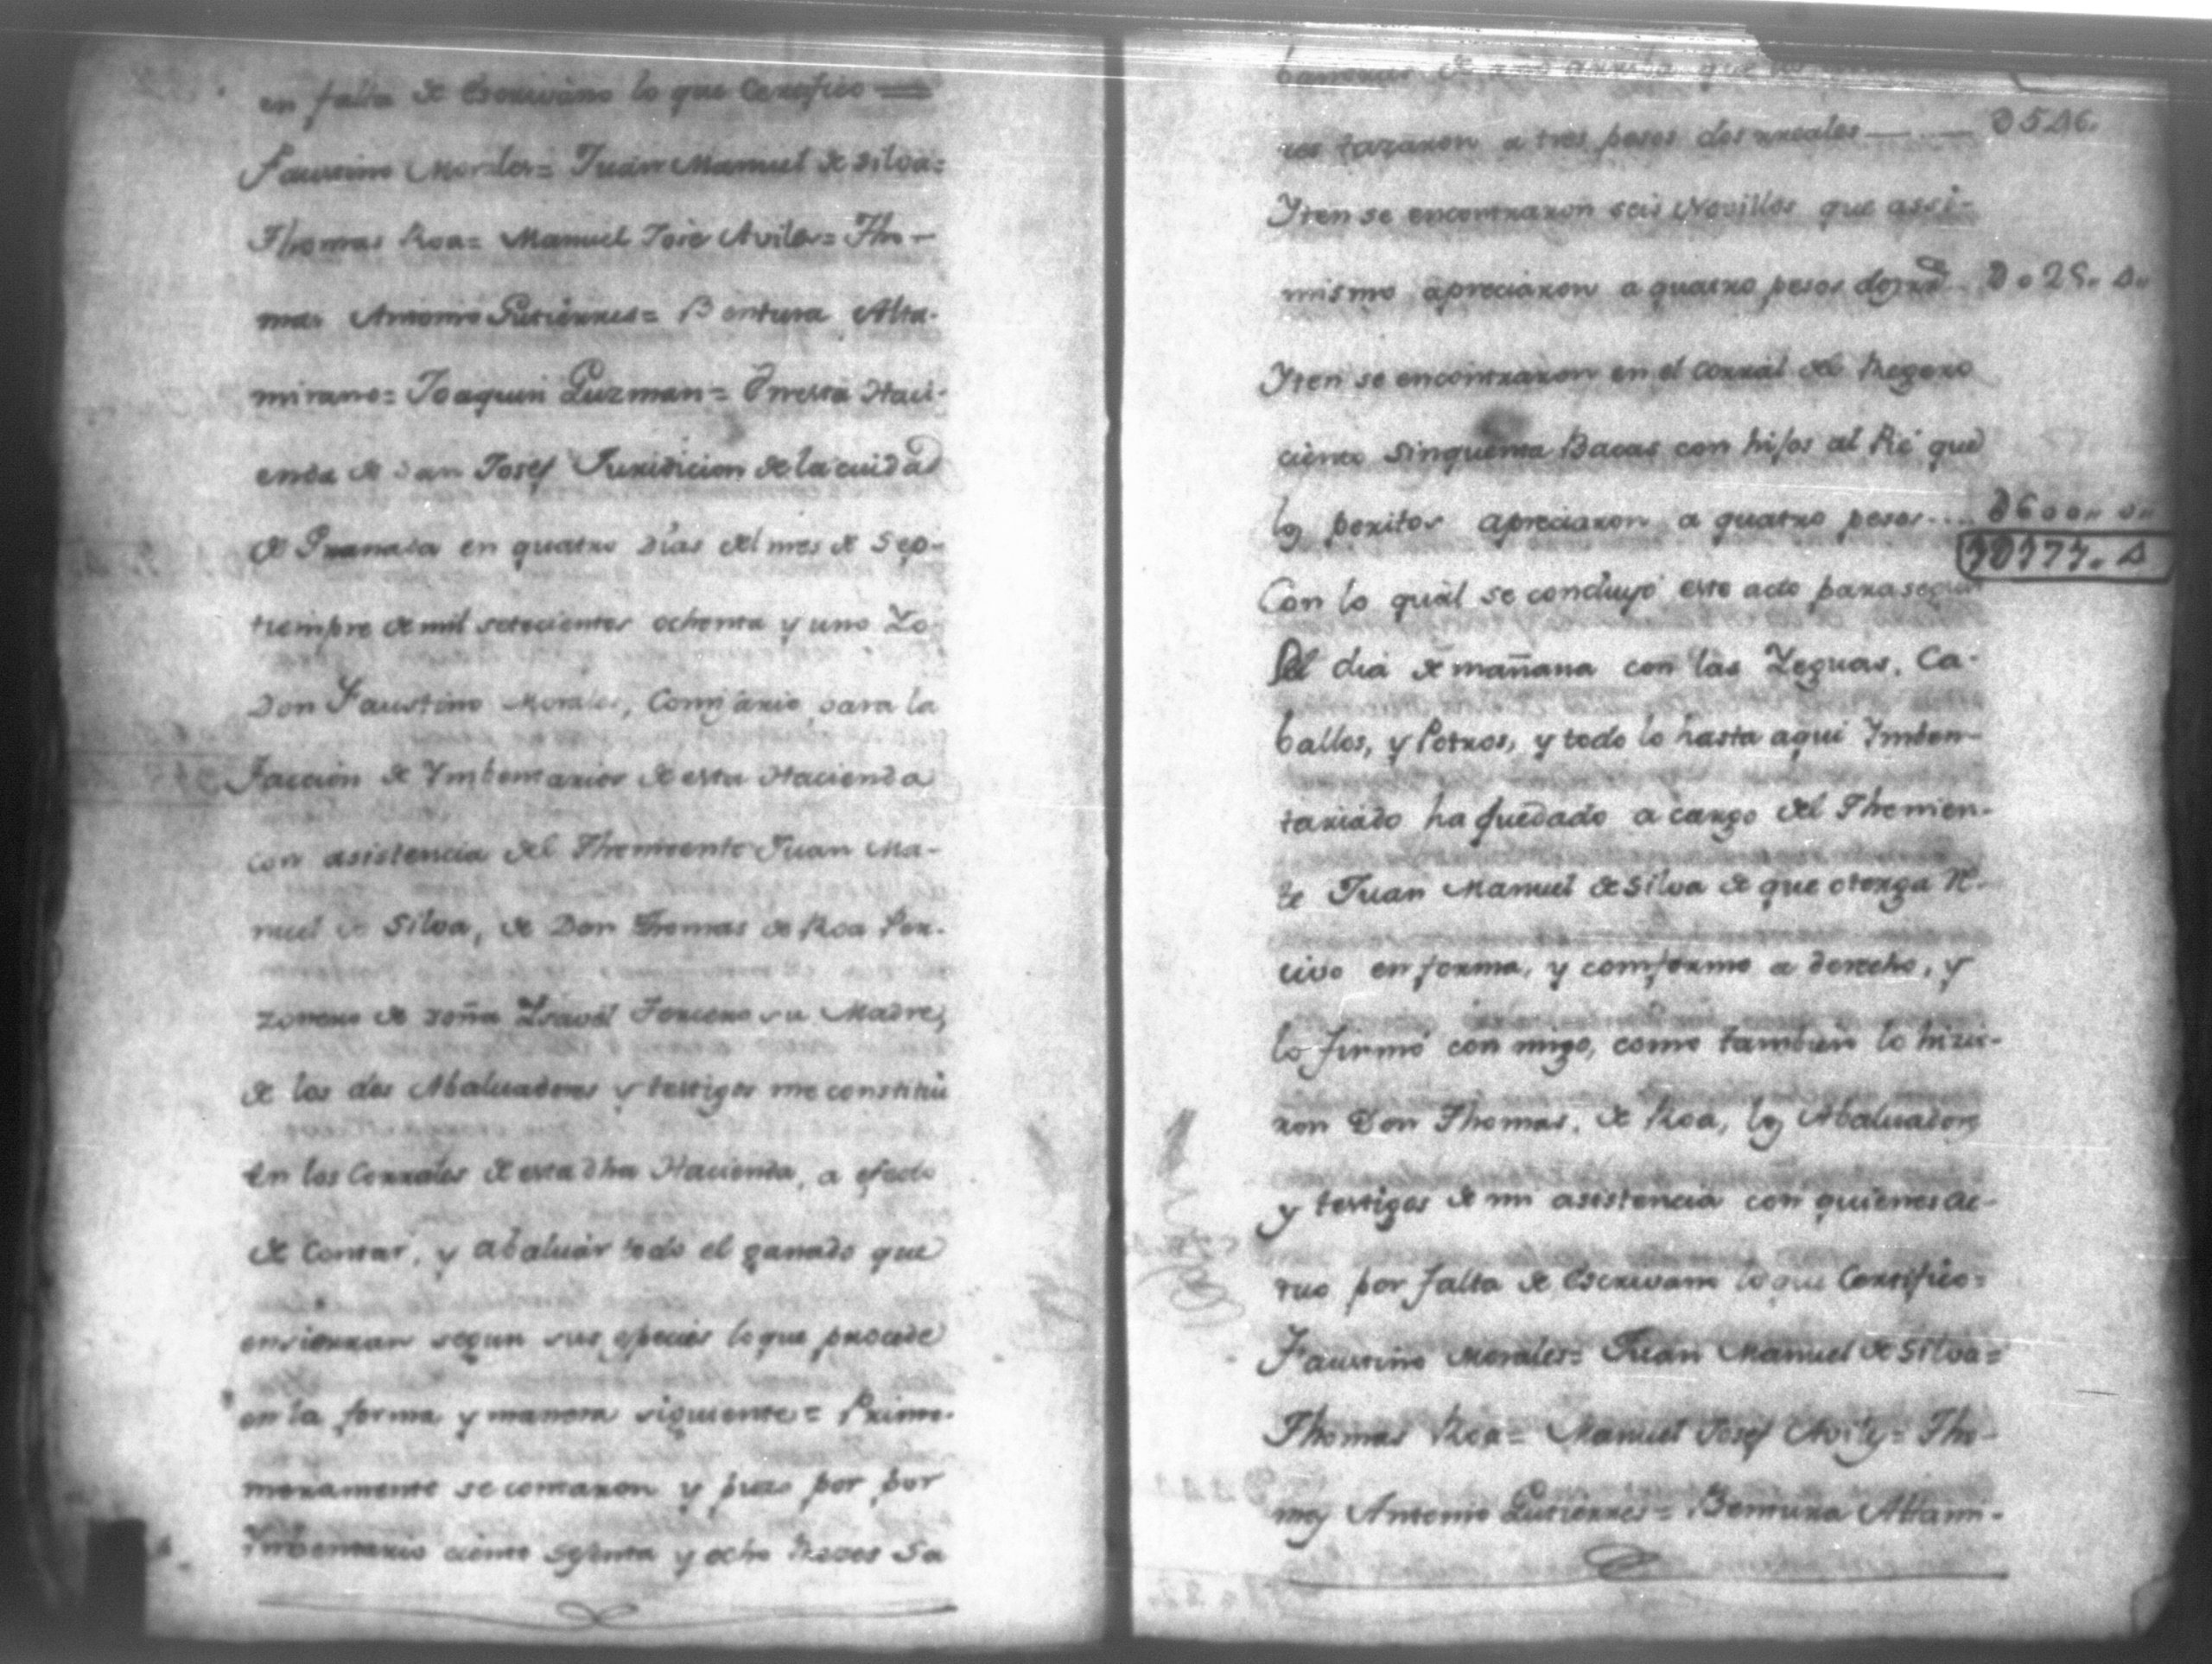 en falta de Escrivano lo que Certifico =
Faustino Morales= Juan Manuel de Silva=
Thomas Roa= Manuel Jose Aviles= Tho-
mas Antonio Gutierres= Bentura Alta-
mirano= Joaquin Guzman= En esta Haci-
enda de San Josef Juridicion de la cuidad
de Granada en quatro Dias del mes de Sep-
tiempre de mil setecientos ochenta y uno Yo
Don Faustino Morales, Comisario para la
faccion de Ymbentarios de esta Hacienda
con asistencia del Theniente Juan Ma-
nuel de Silva, de Don Thomas de Roa Per-
zonero de Doña Ysavel su Madre,
de los dos Abaluadores y testigos me constitui
en los Corrales de esta dha Hacienda, a efecto
de Contar, y abaluar todo el ganado que
ensierran segun sus especies lo que procede
en la forma y manera siguiente= Prime-
meramente se contaron y puzo por por
Ymbentario ciento sesenta y ocho Reses Sa
res tazaron a tres pesos dos rreales
Yten se encontraron seis Novillos que assi-
mismo apreciaron a quatro pesos dos rrs
Yten se encontraron en el corral del
ciento Sinquenta Bacas con hijos al Pié que
los peritos apreciaron a quatro pesos.... D600,, 0,,
Con lo qual se concluyó este acto para seguir
el dia de mañana con las Yeguas, Ca-
ballos, y Potros, y todo lo hasta aqui Ymben-
tariado ha quedado a cargo del Thenien-
te Juan Manuel de Silva de que otorga Re-
civo en forma, y comforme a derecho, y
lo firmó con migo, como tambien lo hizie-
ron Don Thomas. de Roa, los Abaluadores
y testigos de mi asistencia con quienes ac-
tuo por falta de Escrivano lo que Certifico=
Faustino Morales= Juan Manuel de Silva=
Thomas Roa= Manuel Josef Aviles= Tho-
mas Antonio Gutierres= Bentura Altami-